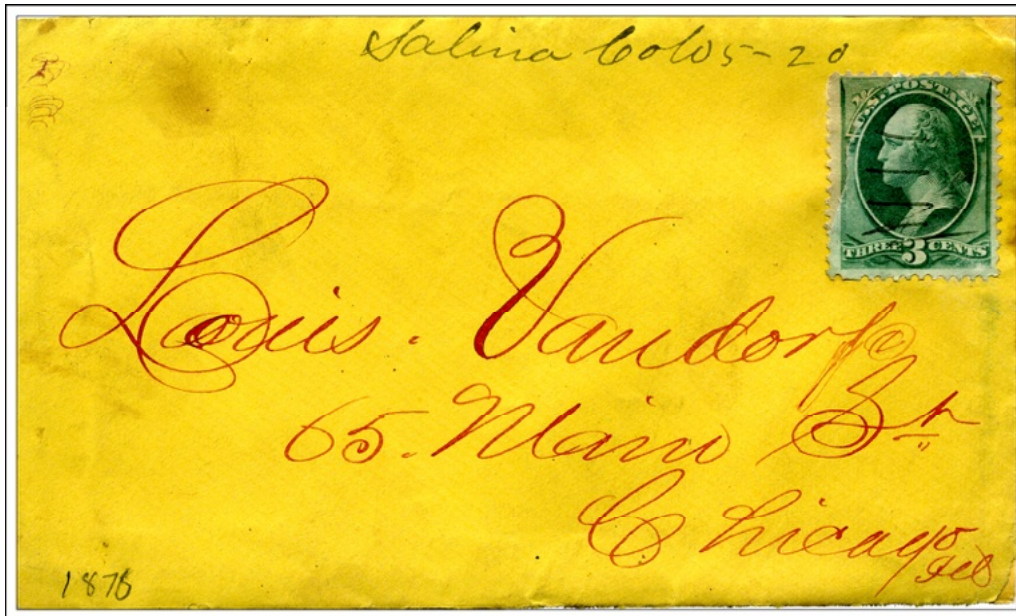 Salina Colo 5-20
U.S. POSTAGE
THREE 3 CENTS
Louis. Vandorp
65. Main St
Chicago
Ills
1878